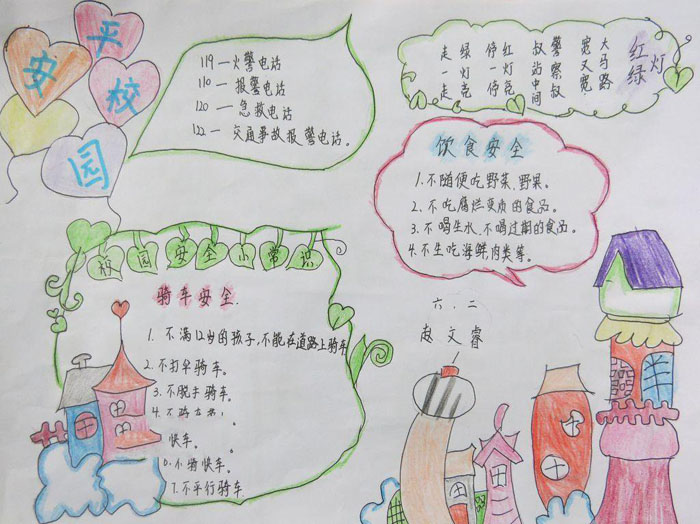 平
安
校
园
119—火警电话
110—报警电话
120—急救电话
122—交通事故报警电话。
红
绿灯
大马路
宽又宽
警察叔
叔站中间
红灯亮
停一停
绿灯亮
走一走
饮食安全
1.不随便吃野菜、野果。
2.不吃腐烂变质的食品。
3.不喝生水、不喝过期的食品。
4.不生吃海鲜,肉类等。
校园安全小常识
骑车安全.
1.不满12岁的孩子,不能在道路上骑车
2.不打伞骑车。
3.不脱手骑车。
4.不骑
快车。
6.不骑快车。
7.不平行骑车
六.二
赵文睿